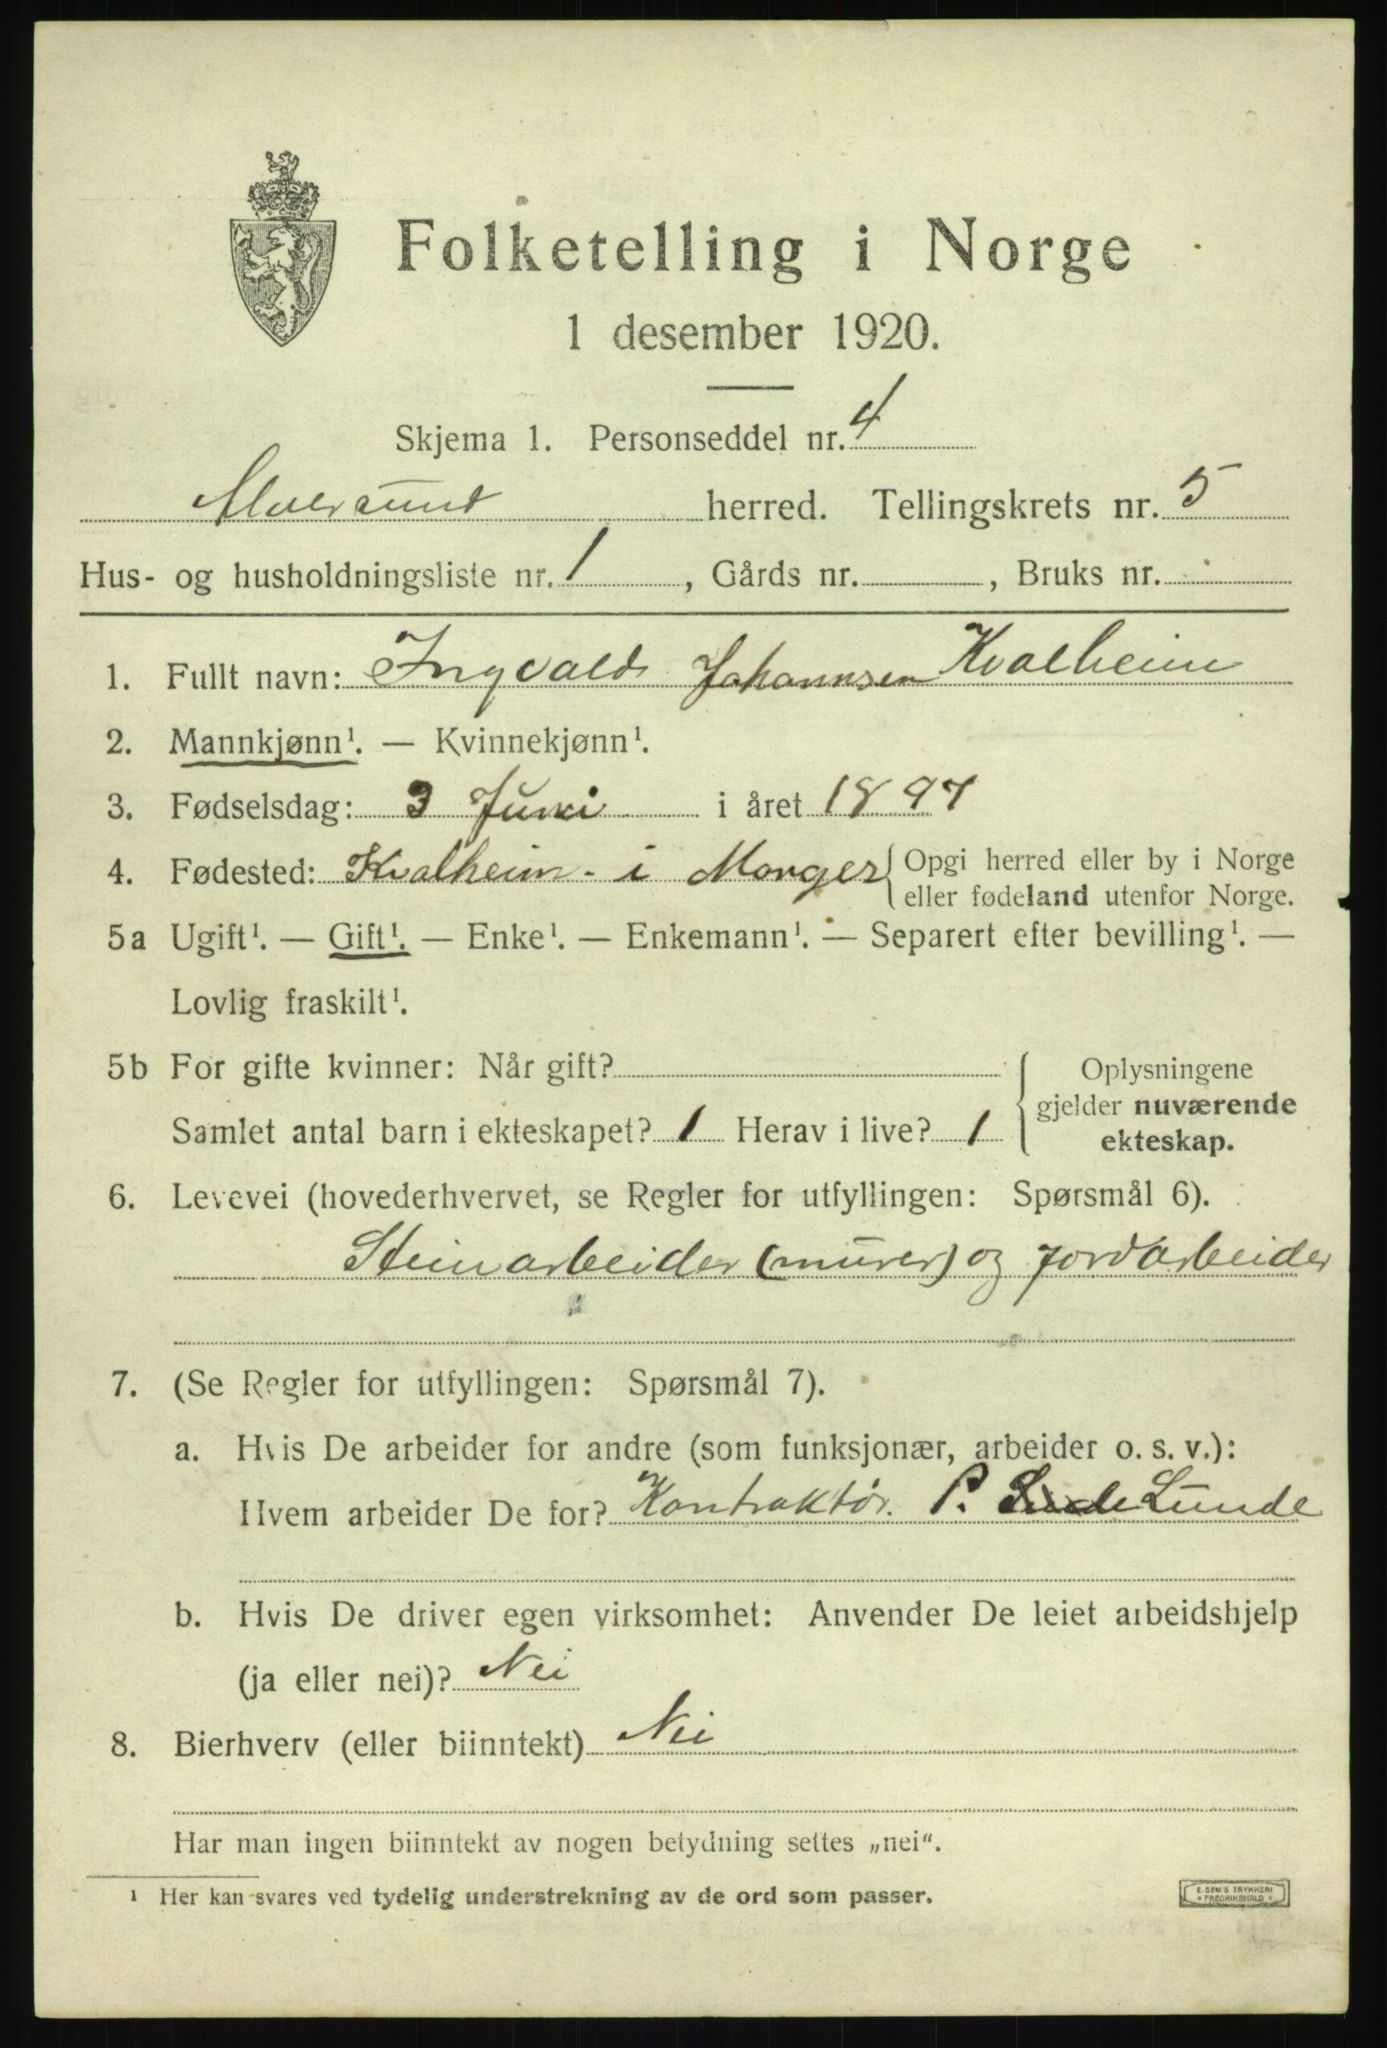 Folketelling i Norge
1 desember 1920.
Skjema 1. Personseddel nr. 4
Alversund herred. Tellingskrets nr. 5
Hus- og husholdningsliste nr. 1, Gårds nr. , Bruks nr.
1. Fullt navn: Ingvald Johannsen Kvalheim
2. Mannkjønn¹. — Kvinnekjønn¹.
3. Fødselsdag: 3 Juni i året 1897
4. Fødested: Kvalheim - i Manger Opgi herred eller by i Norge
eller fødeland utenfor Norge.
5a Ugift¹. — Gift¹. — Enke¹. — Enkemann¹. — Separert efter bevilling¹. —
Lovlig fraskilt¹.
5b For gifte kvinner: Når gift?
Samlet antal barn i ekteskapet? 1 Herav i live? 1
Oplysningene
gjelder nuværende
ekteskap.
6. Levevei (hovederhvervet, se Regler for utfyllingen: Spørsmål 6).
Steinarbeider (murer) og jordarbeider
7. (Se Regler for utfyllingen: Spørsmål 7).
a. Hvis De arbeider for andre (som funksjonær, arbeider o. s. v.):
Hvem arbeider De for? Kontraktør. P. Lunde
b. Hvis De driver egen virksomhet: Anvender De leiet arbeidshjelp
(ja eller nei)? Nei
8. Bierhverv (eller biinntekt) Nei
Har man ingen biinntekt av nogen betydning settes „nei“.
¹ Her kan svares ved tydelig understrekning av de ord som passer.
E. SEM'S TRYKKERI
* FREDRIKSHALD *